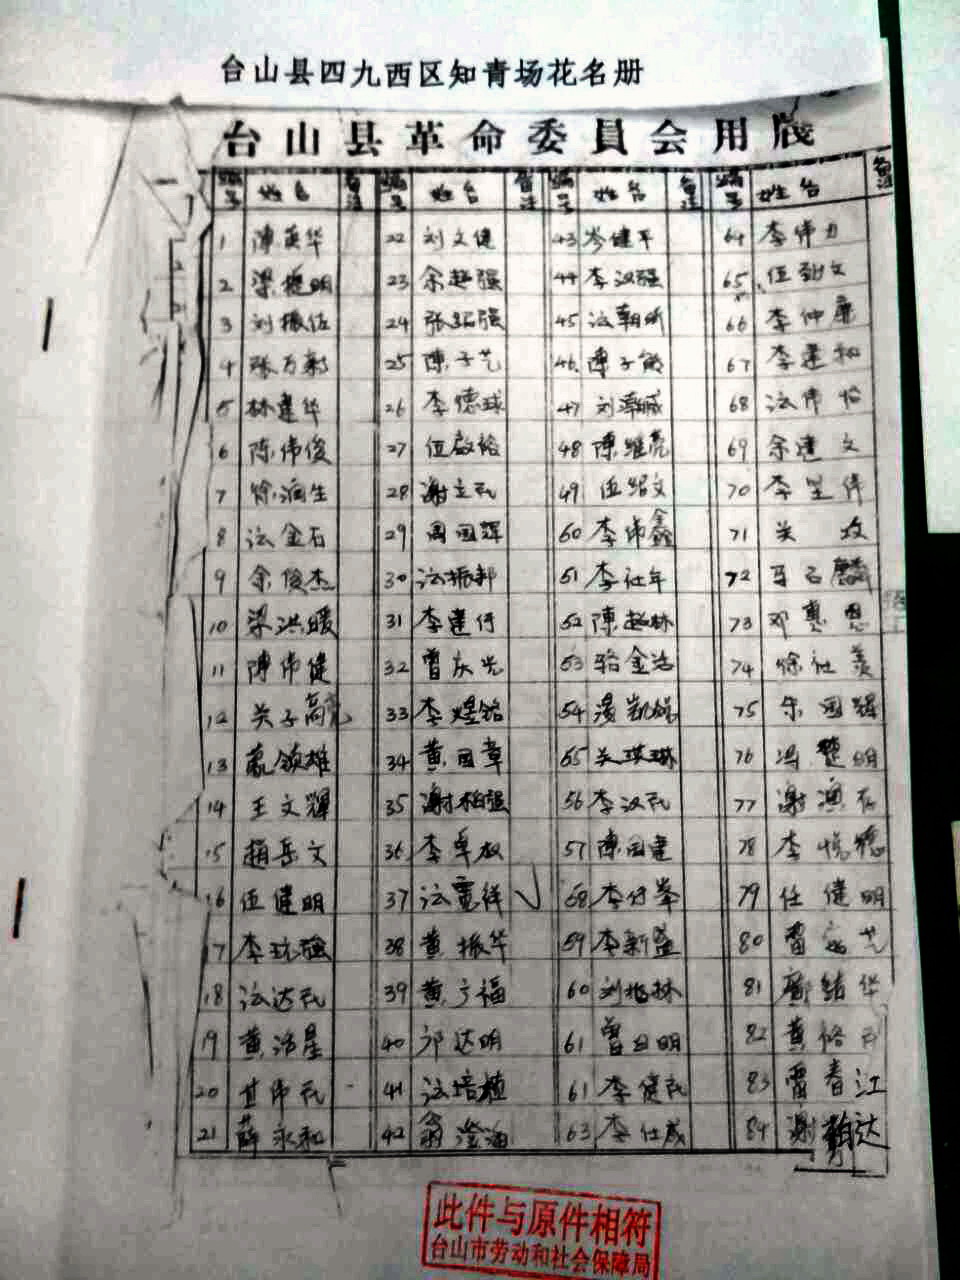 台山县四九西区知青场花名册
台山县革命委員会用牋
编号 姓名 备注 编号 姓名 备注 编号 姓名 备注 编号 姓名 备注
1 陳英华 22 刘文健 43 岑健平 64 李伟力
2 梁挺明 23 余超强 44 李汉强 65 伍劲文
3 刘振伍 24 张绍强 45 66 李仲廉
4 张万新 25 陳子艺 46 陳子能 67 李建和
5 林建华 26 李德球 47 刘灏威 68
6 陈伟俊 27 伍啟裕 48 陳維亮 69 余建文
7 徐润生 28 谢立民 49 伍绍文 70 李坚伟
8 金石 29 周国輝 50 李伟鑫 71 关
9 余俊杰 30 振邦 51 李社年 72 马石麟
10 梁洪暖 31 李建仔 52 陳超林 73 邓惠恩
11 陳伟健 32 曾庆光 53 骆金浩 74 徐社羡
12 关子高 33 李煜铭 54 凯雄 75 朱国輝
13 领雄 34 黄国章 55 关琪琳 76 冯楚明
14 王文輝 35 谢柏强 56 李汉民 77 谢
15 趙岳文 36 李卓权 57 陳国建 78 李悦德
16 伍健明 37 38 李仔峯 79 任健明
17 李 强 38 黄振华 59 李新盛 80 雷 艺
18 达民 39 黄 福 60 刘 林 81 华
19 黄浩星 40 邝达明 61 曾日明 82 黄裕
20 甘伟民 41 培植 61 李健民 83 雷春江
21 薛永和 42 翁澄海 63 李仕威 84 谢 达
此件与原件相符
台山市劳动和社会保障局